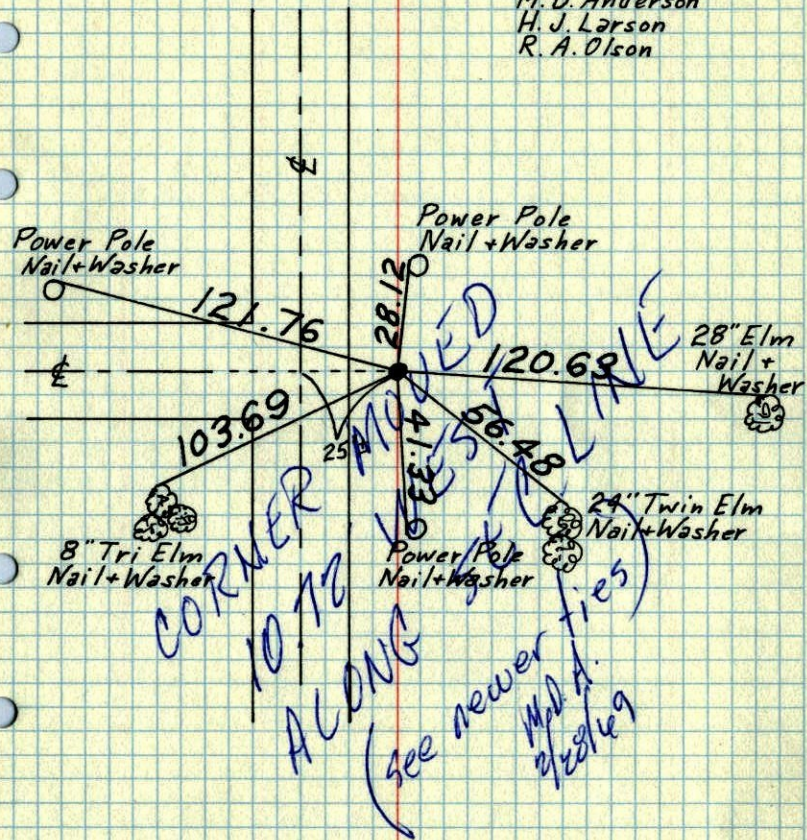 M. D. Anderson
H. J. Larson
R. A. Olson
℄
Power Pole
Nail + Washer
Power Pole
Nail+Washer
121.76
28.12
120.68
28" Elm
Nail +
Washer
℄
103.69
25
41.33
56.48
8" Tri Elm
Nail+Washer
Power Pole
Nail+Washer
24" Twin Elm
Nail+Washer
CORNER MOVED
WEST
ALONG LINE
(see newer ties)
M.D.A.